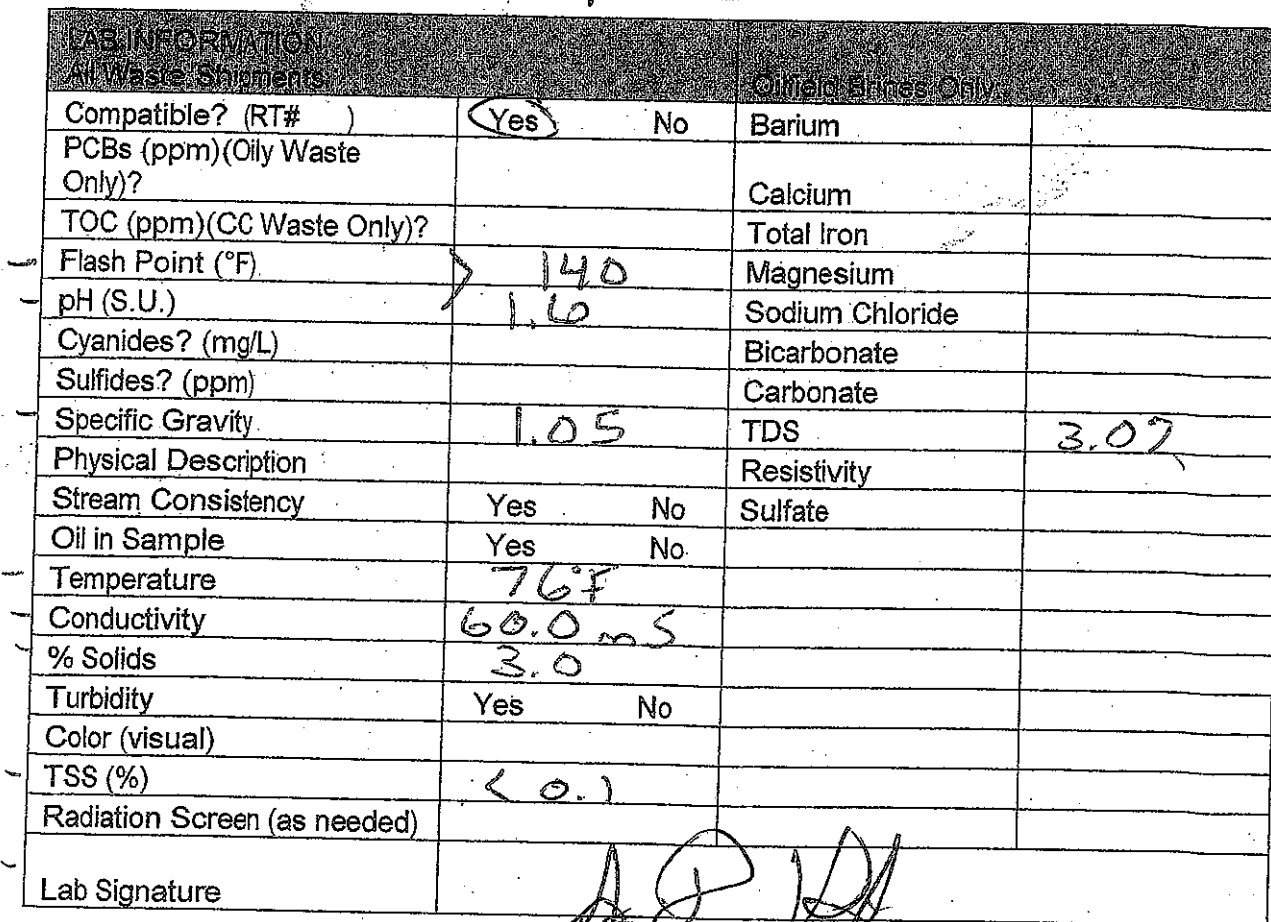 LAB INFORMATION
All Waste Shipments Oilfield Brines Only
Compatible? (RT# ) Yes No Barium
PCBs (ppm)(Oily Waste
Only)? Calcium
TOC (ppm)(CC Waste Only)? Total Iron
Flash Point (°F) > 140 Magnesium
pH (S.U.) 1.60 Sodium Chloride
Cyanides? (mg/L) Bicarbonate
Sulfides? (ppm) Carbonate
Specific Gravity 1.05 TDS
Physical Description Resistivity
Stream Consistency Yes No Sulfate
Oil in Sample Yes No
Temperature 76°F
Conductivity 60.0 mS
% Solids 3.0
Turbidity Yes No
Color (visual)
TSS (%) < 0.1
Radiation Screen (as needed)
Lab Signature